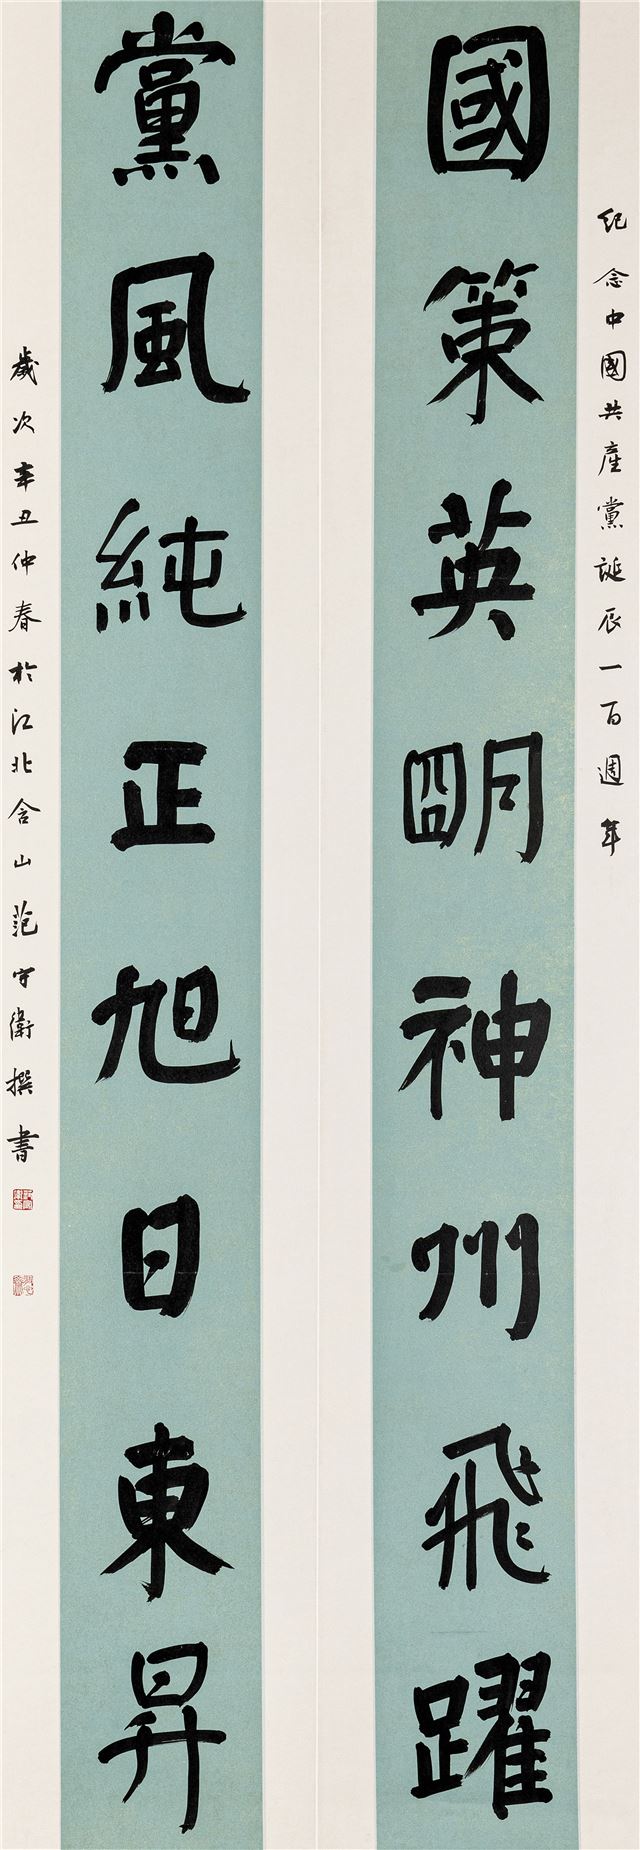 紀念中國共產黨誕辰一百週年
國策英明神州飛躍
黨風純正旭日東昇
歲次辛丑仲春於江北含山范守衛撰書